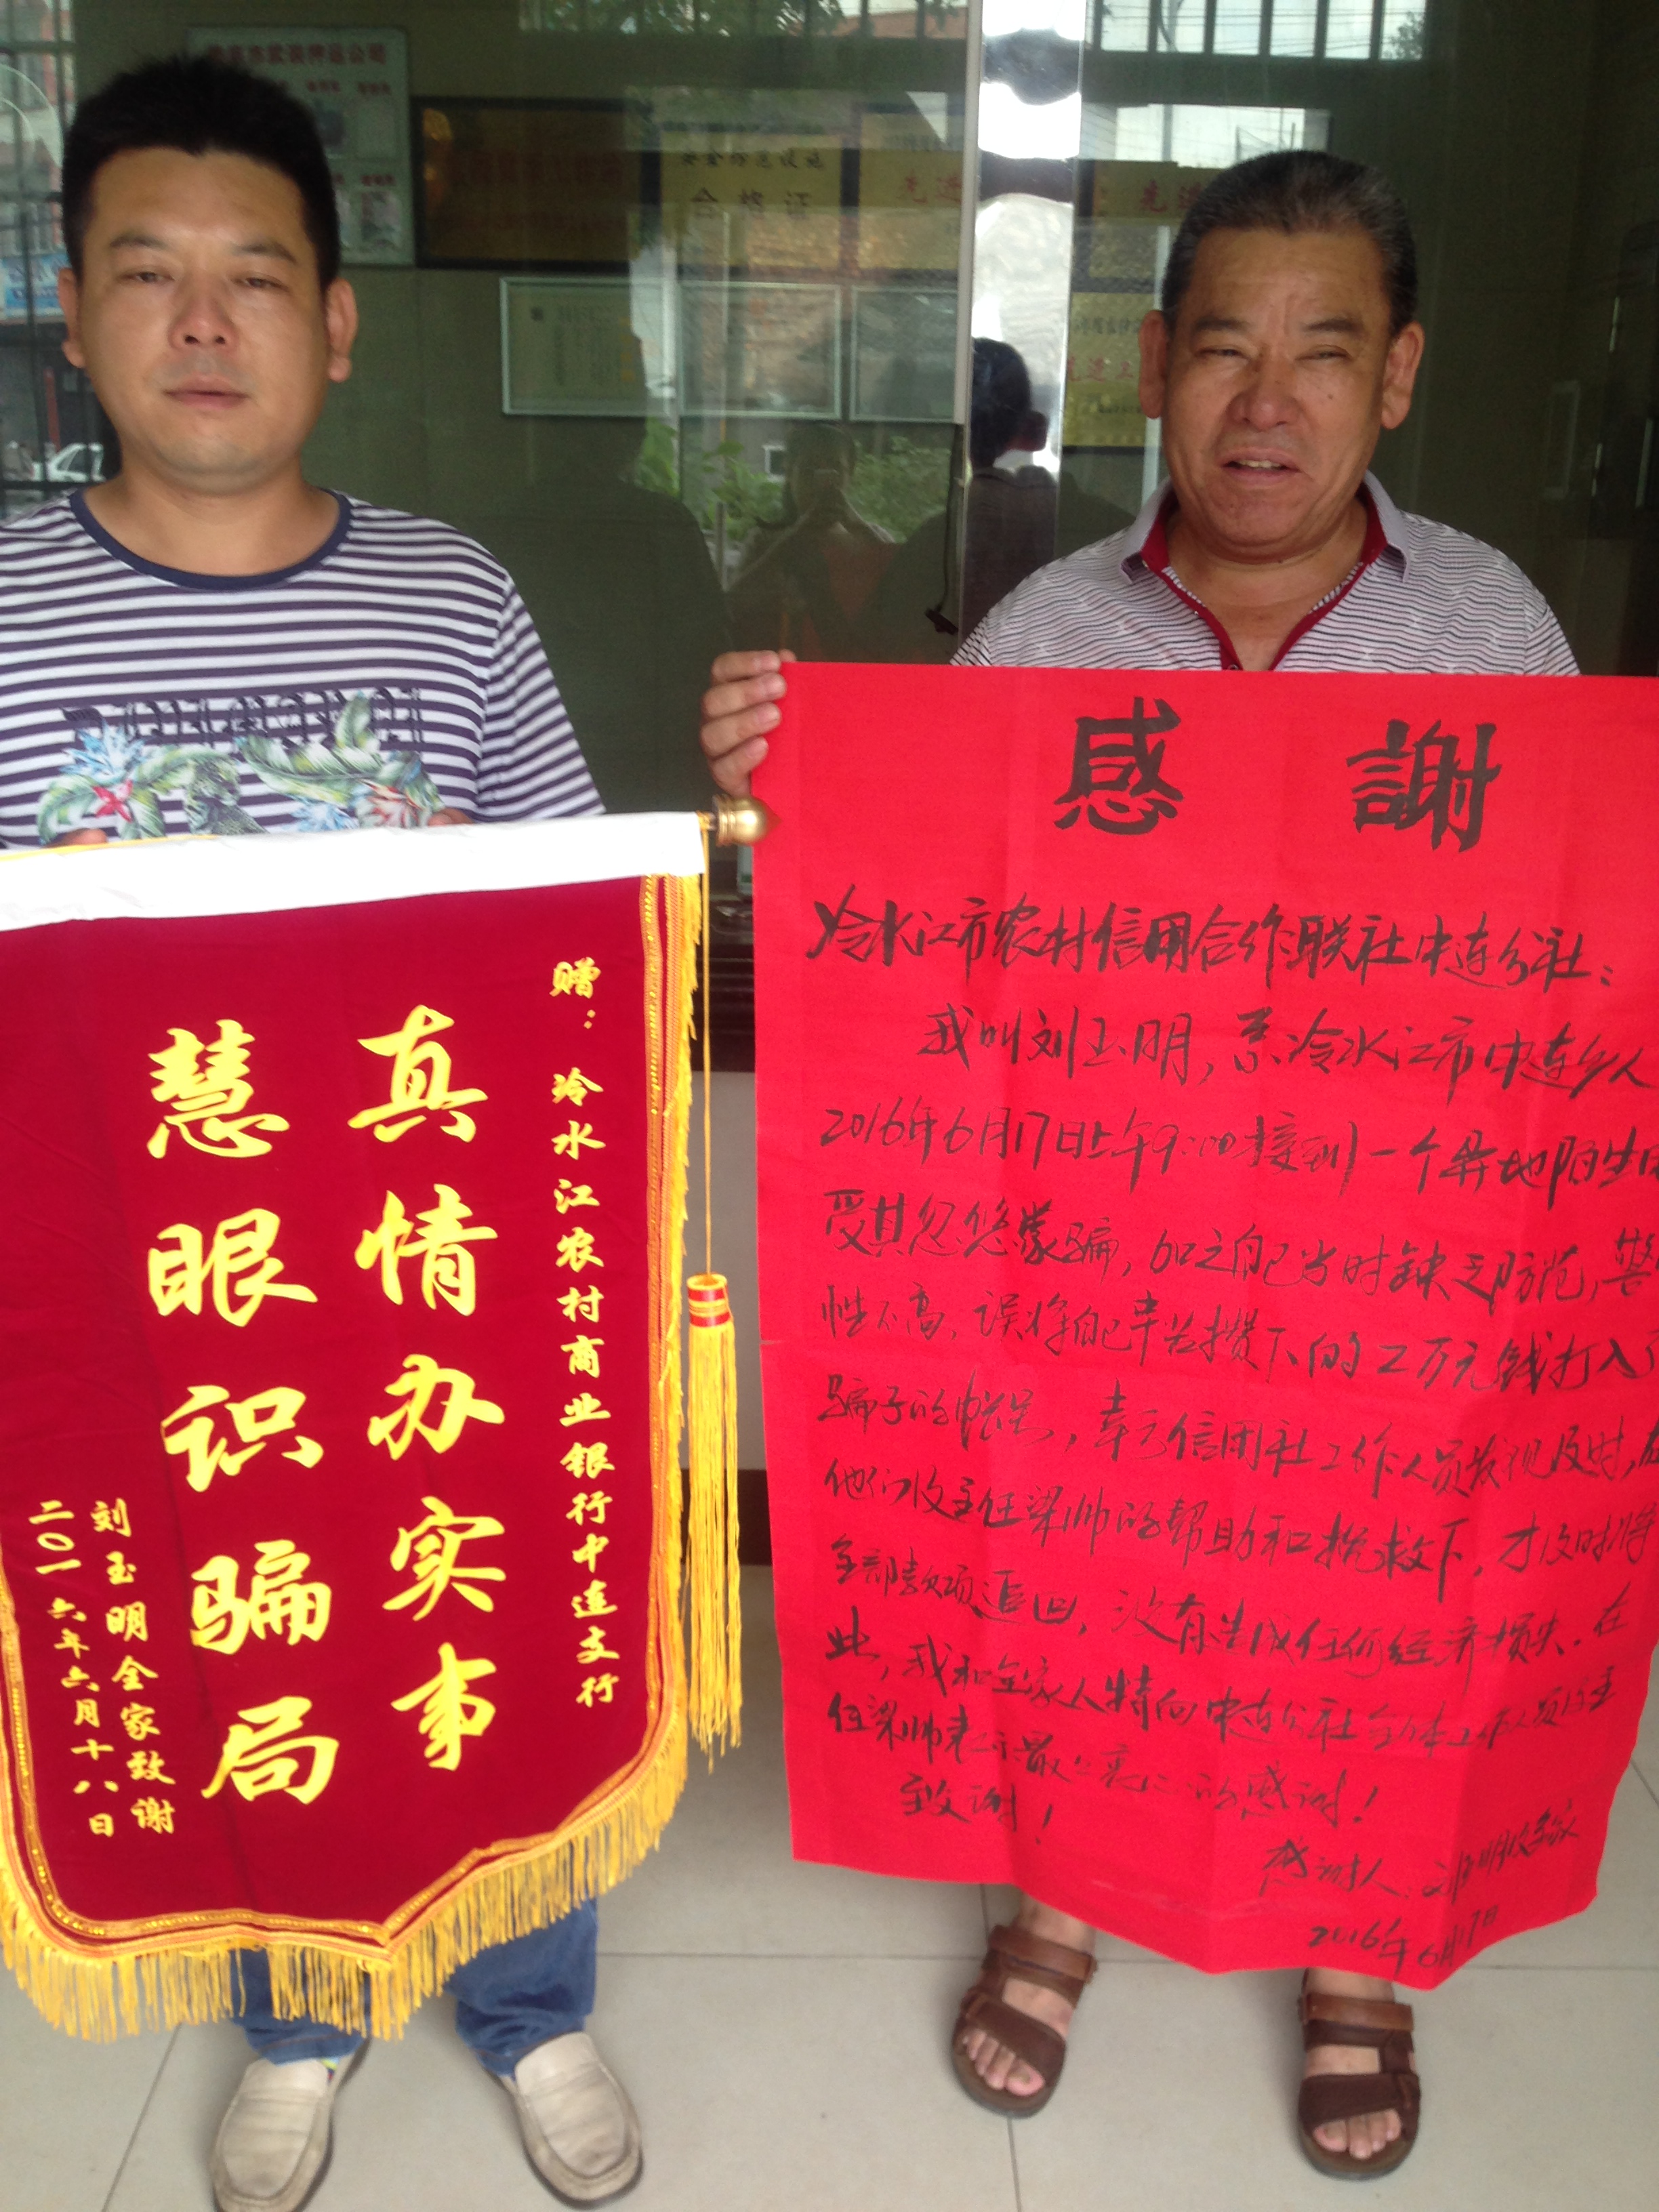 安全防范设施
合格证
先进
先进
赠：冷水江农村商业银行中连支行
真情办实事
慧眼识骗局
刘玉明全家致谢
二〇一六年六月十八日
感謝
冷水江市农村信用合作联社中连分社：
我叫刘玉明，系冷水江市中连乡人
2016年6月17日上午9:00接到一个异地陌生电
受其忽悠蒙骗，加之自己当时缺乏防范，警
性不高，误将自己辛苦攒下的2万元钱打入了
骗子的帐号，幸亏信用社工作人员发现及时，在
他们及主任梁帅的帮助和挽救下，才及时将
全部款项追回，没有造成任何经济损失。在
此，我和全家人特向中连分社全体工作人员及主
任梁帅表示最衷心的感谢！
致谢！
感谢人：刘玉明及全家
2016年6月17日